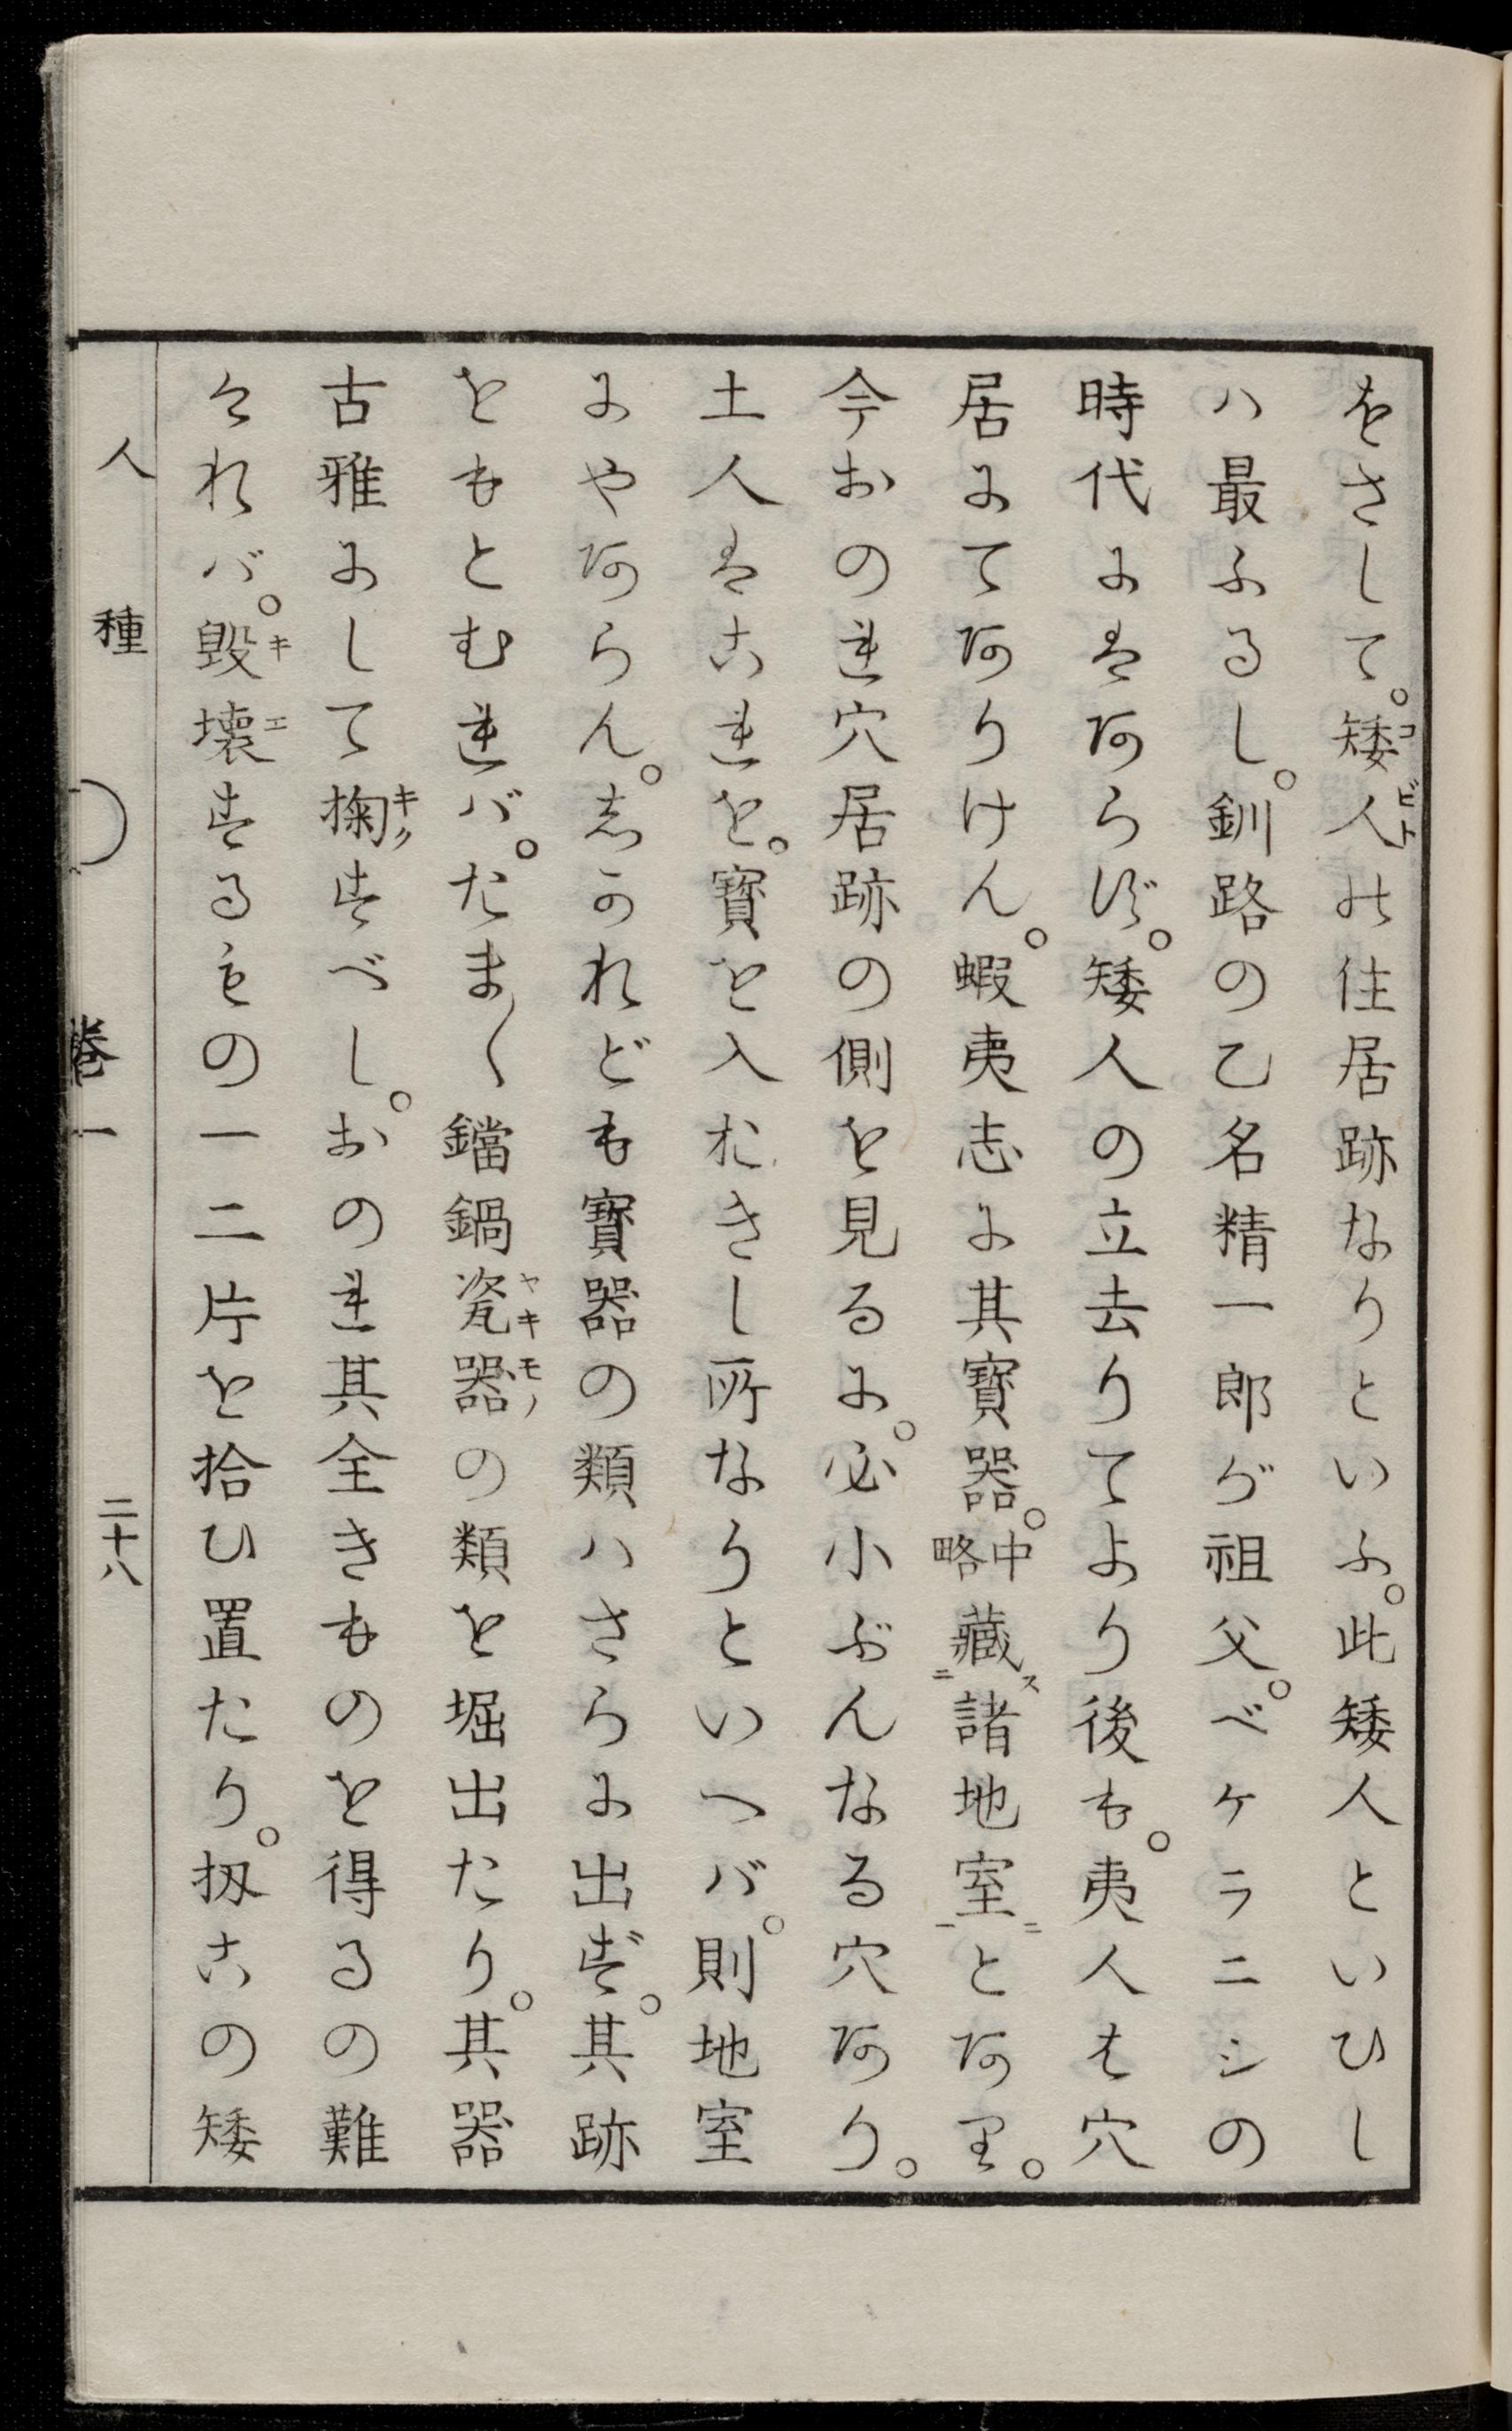 をさして。矮人の住居跡なりといふ。此矮人といひし
ハ最ふるし。釧路の乙名精一郎が祖父。ベケラニシの
時代にはあらず。矮人の立去りてより後も。夷人も穴
居にてありけん。蝦夷志に其寶器。中略藏諸地室とあり。
今おのれ穴居跡の側を見るに。必小ぶんなる穴あり。
土人はこれを。寶を入おきし所なりといへバ。則地室
にやあらん。しかれども寶器の類ハさらに出ず。其跡
をもとむれバ。たま〱鐺鍋瓷器の類を堀出たり。其器
古雅にして掬すべし。おのれ其全きものを得るの難
けれバ。毀壊するものゝ一二片を拾ひ置たり。扨この矮
人種 卷一 二十八